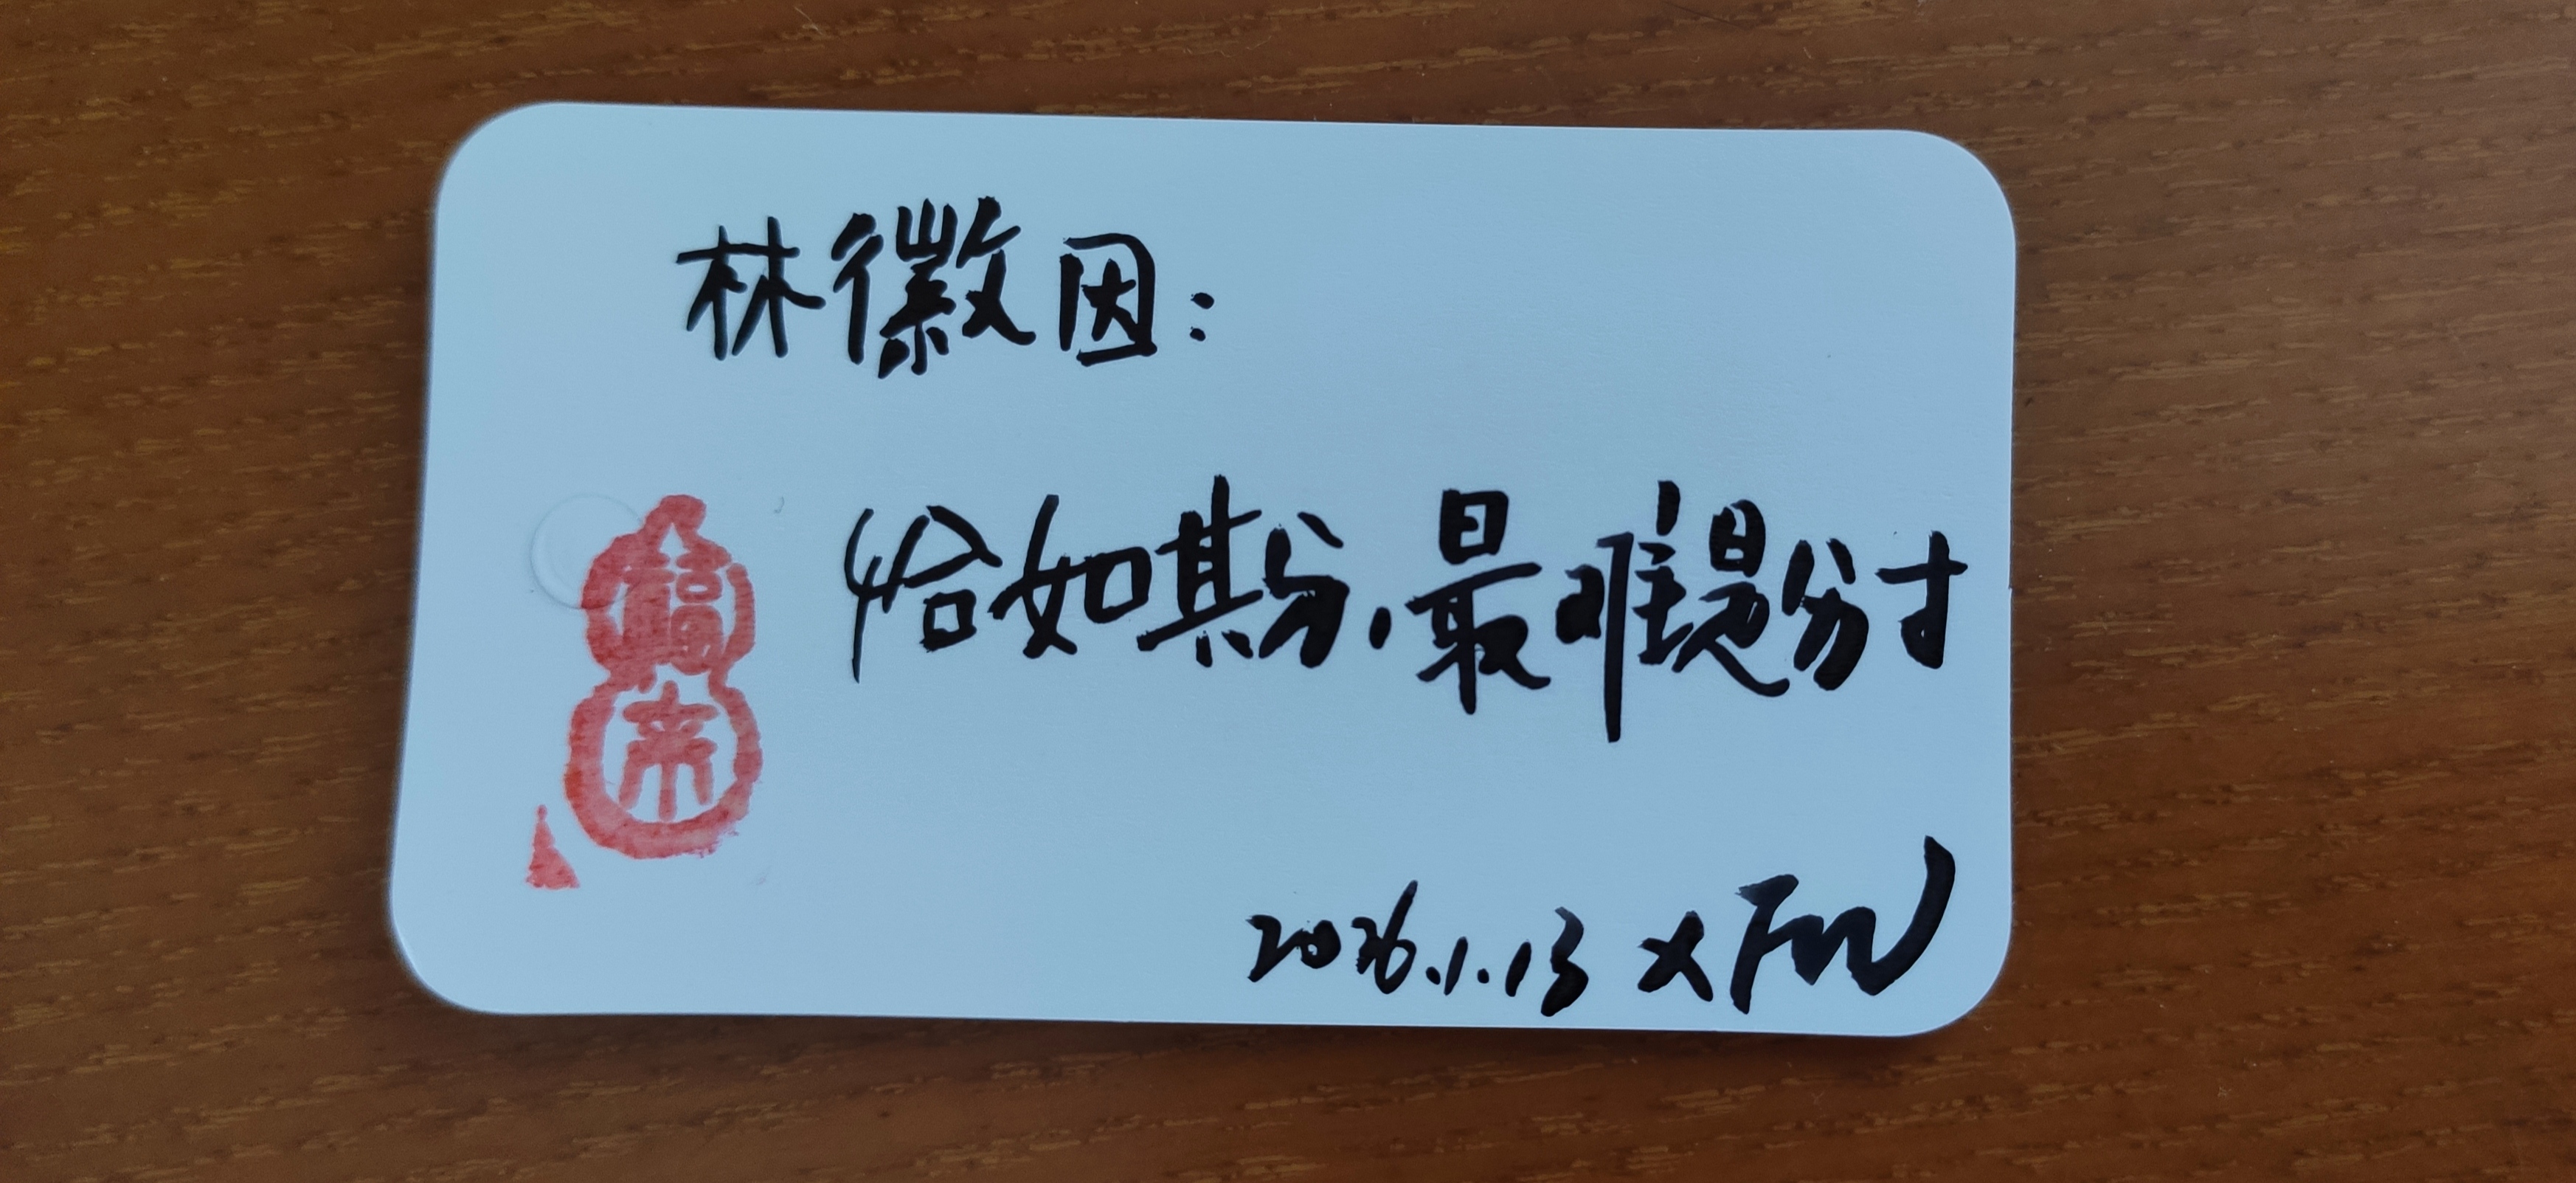 林徽因：
恰如其分，最难是分寸
福
来
2026.1.13